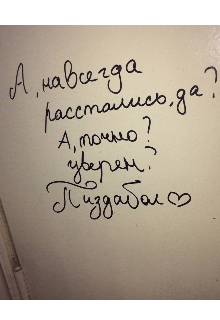 А, навсегда
расстались, да?
А, точно?
уверен?
Пиздабол♡